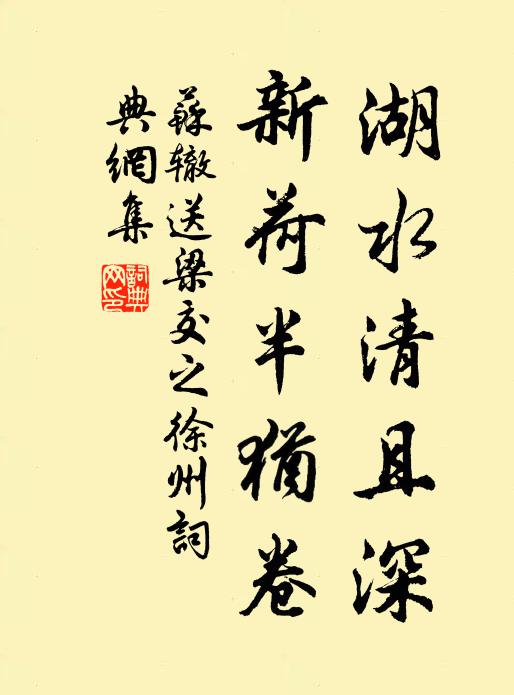 湖水清且深
新荷半猶卷
蘇辙送梁交之徐州詞
典網集
詞典网印